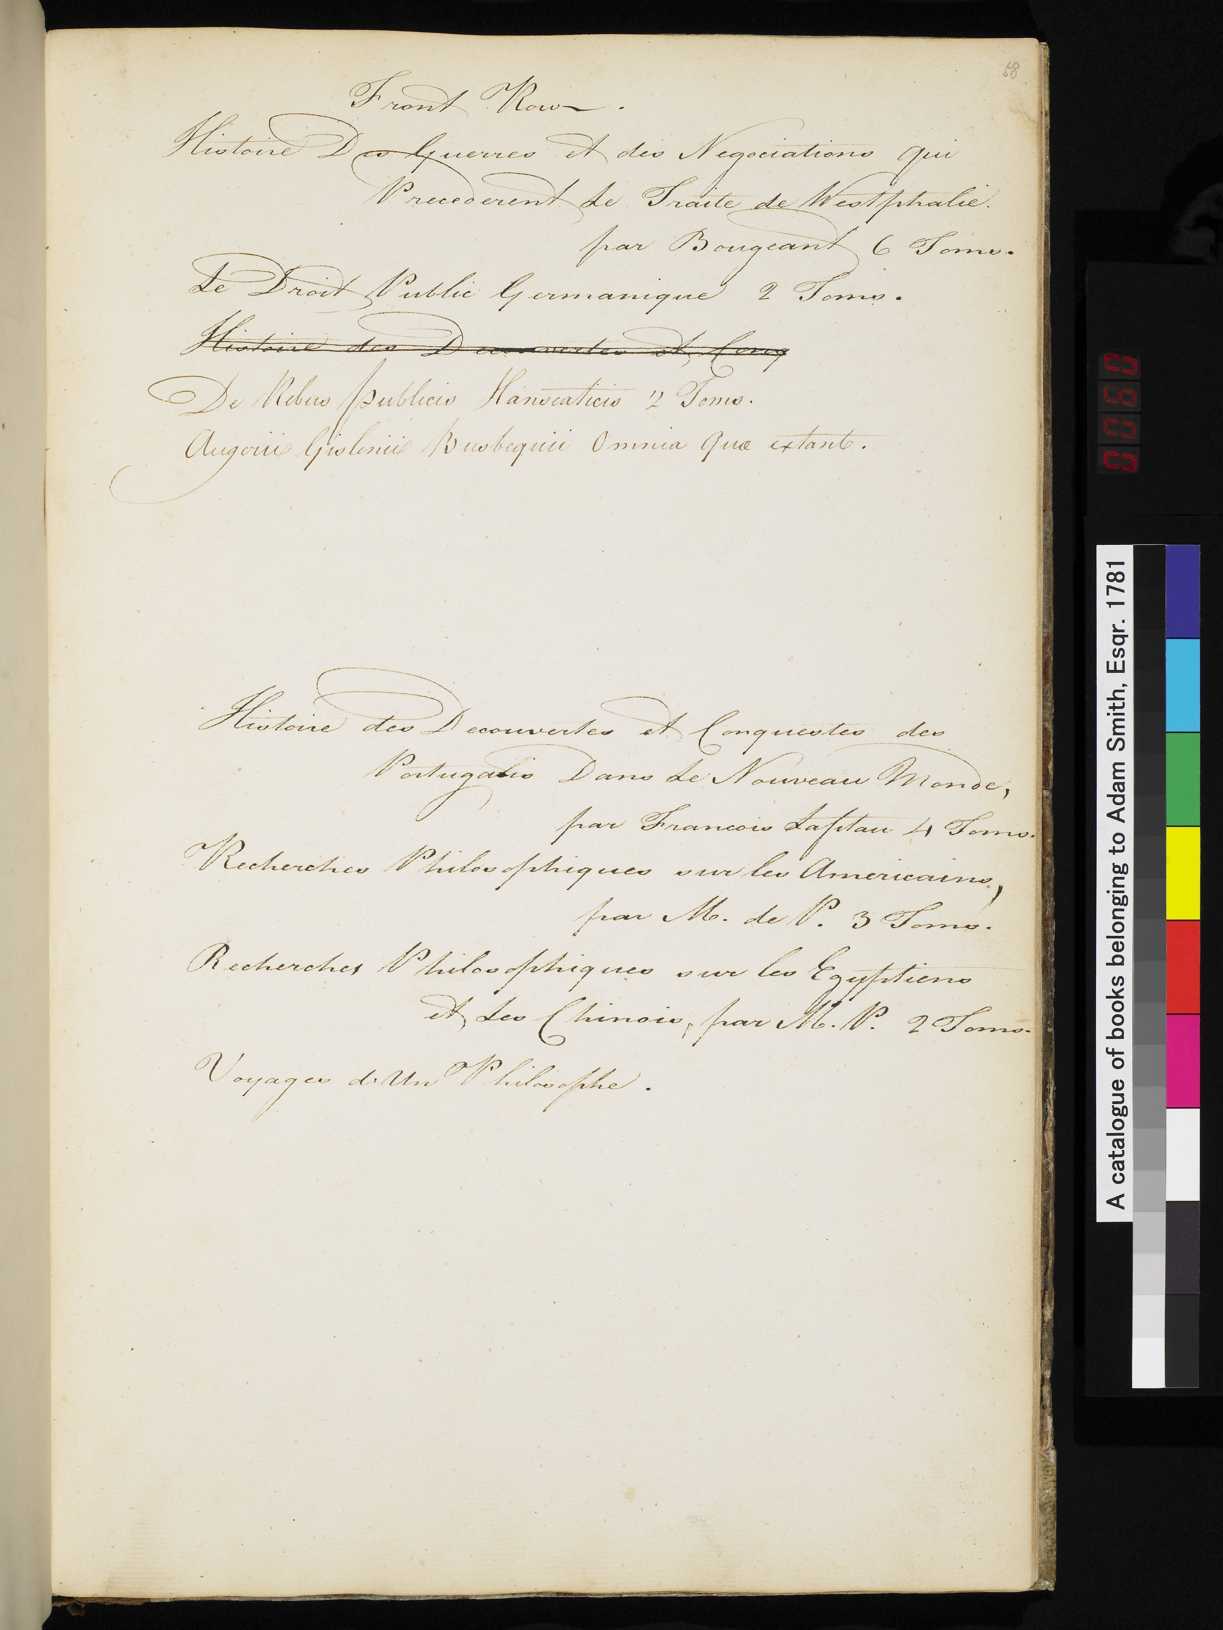 58
Front Row.
Histoire Des Guerres et des Negociations qui
Precederent Le Traite de Westphalie.
par Bougeant 6 Toms.
Le Droit Public Germanique 2 Toms.
Histoire des Decouvertes et Conq
De Rebus publicis Hanseaticis 2 Toms.
Augerii Gislenii Busbequii Omnia Quæ extant.
Histoire des Decouvertes et Conquestes des
Portugais Dans Le Nouveau Monde,
par Francois Lafitau 4 Toms.
Recherches Philosophiques sur les Americains,
par M. de P. 3 Toms.
Recherches Philosophiques sur les Egyptiens
et Les Chinois, par M. P. 2 Toms.
Voyages d'Un Philosophe.
0080
A catalogue of books belonging to Adam Smith, Esqr. 1781